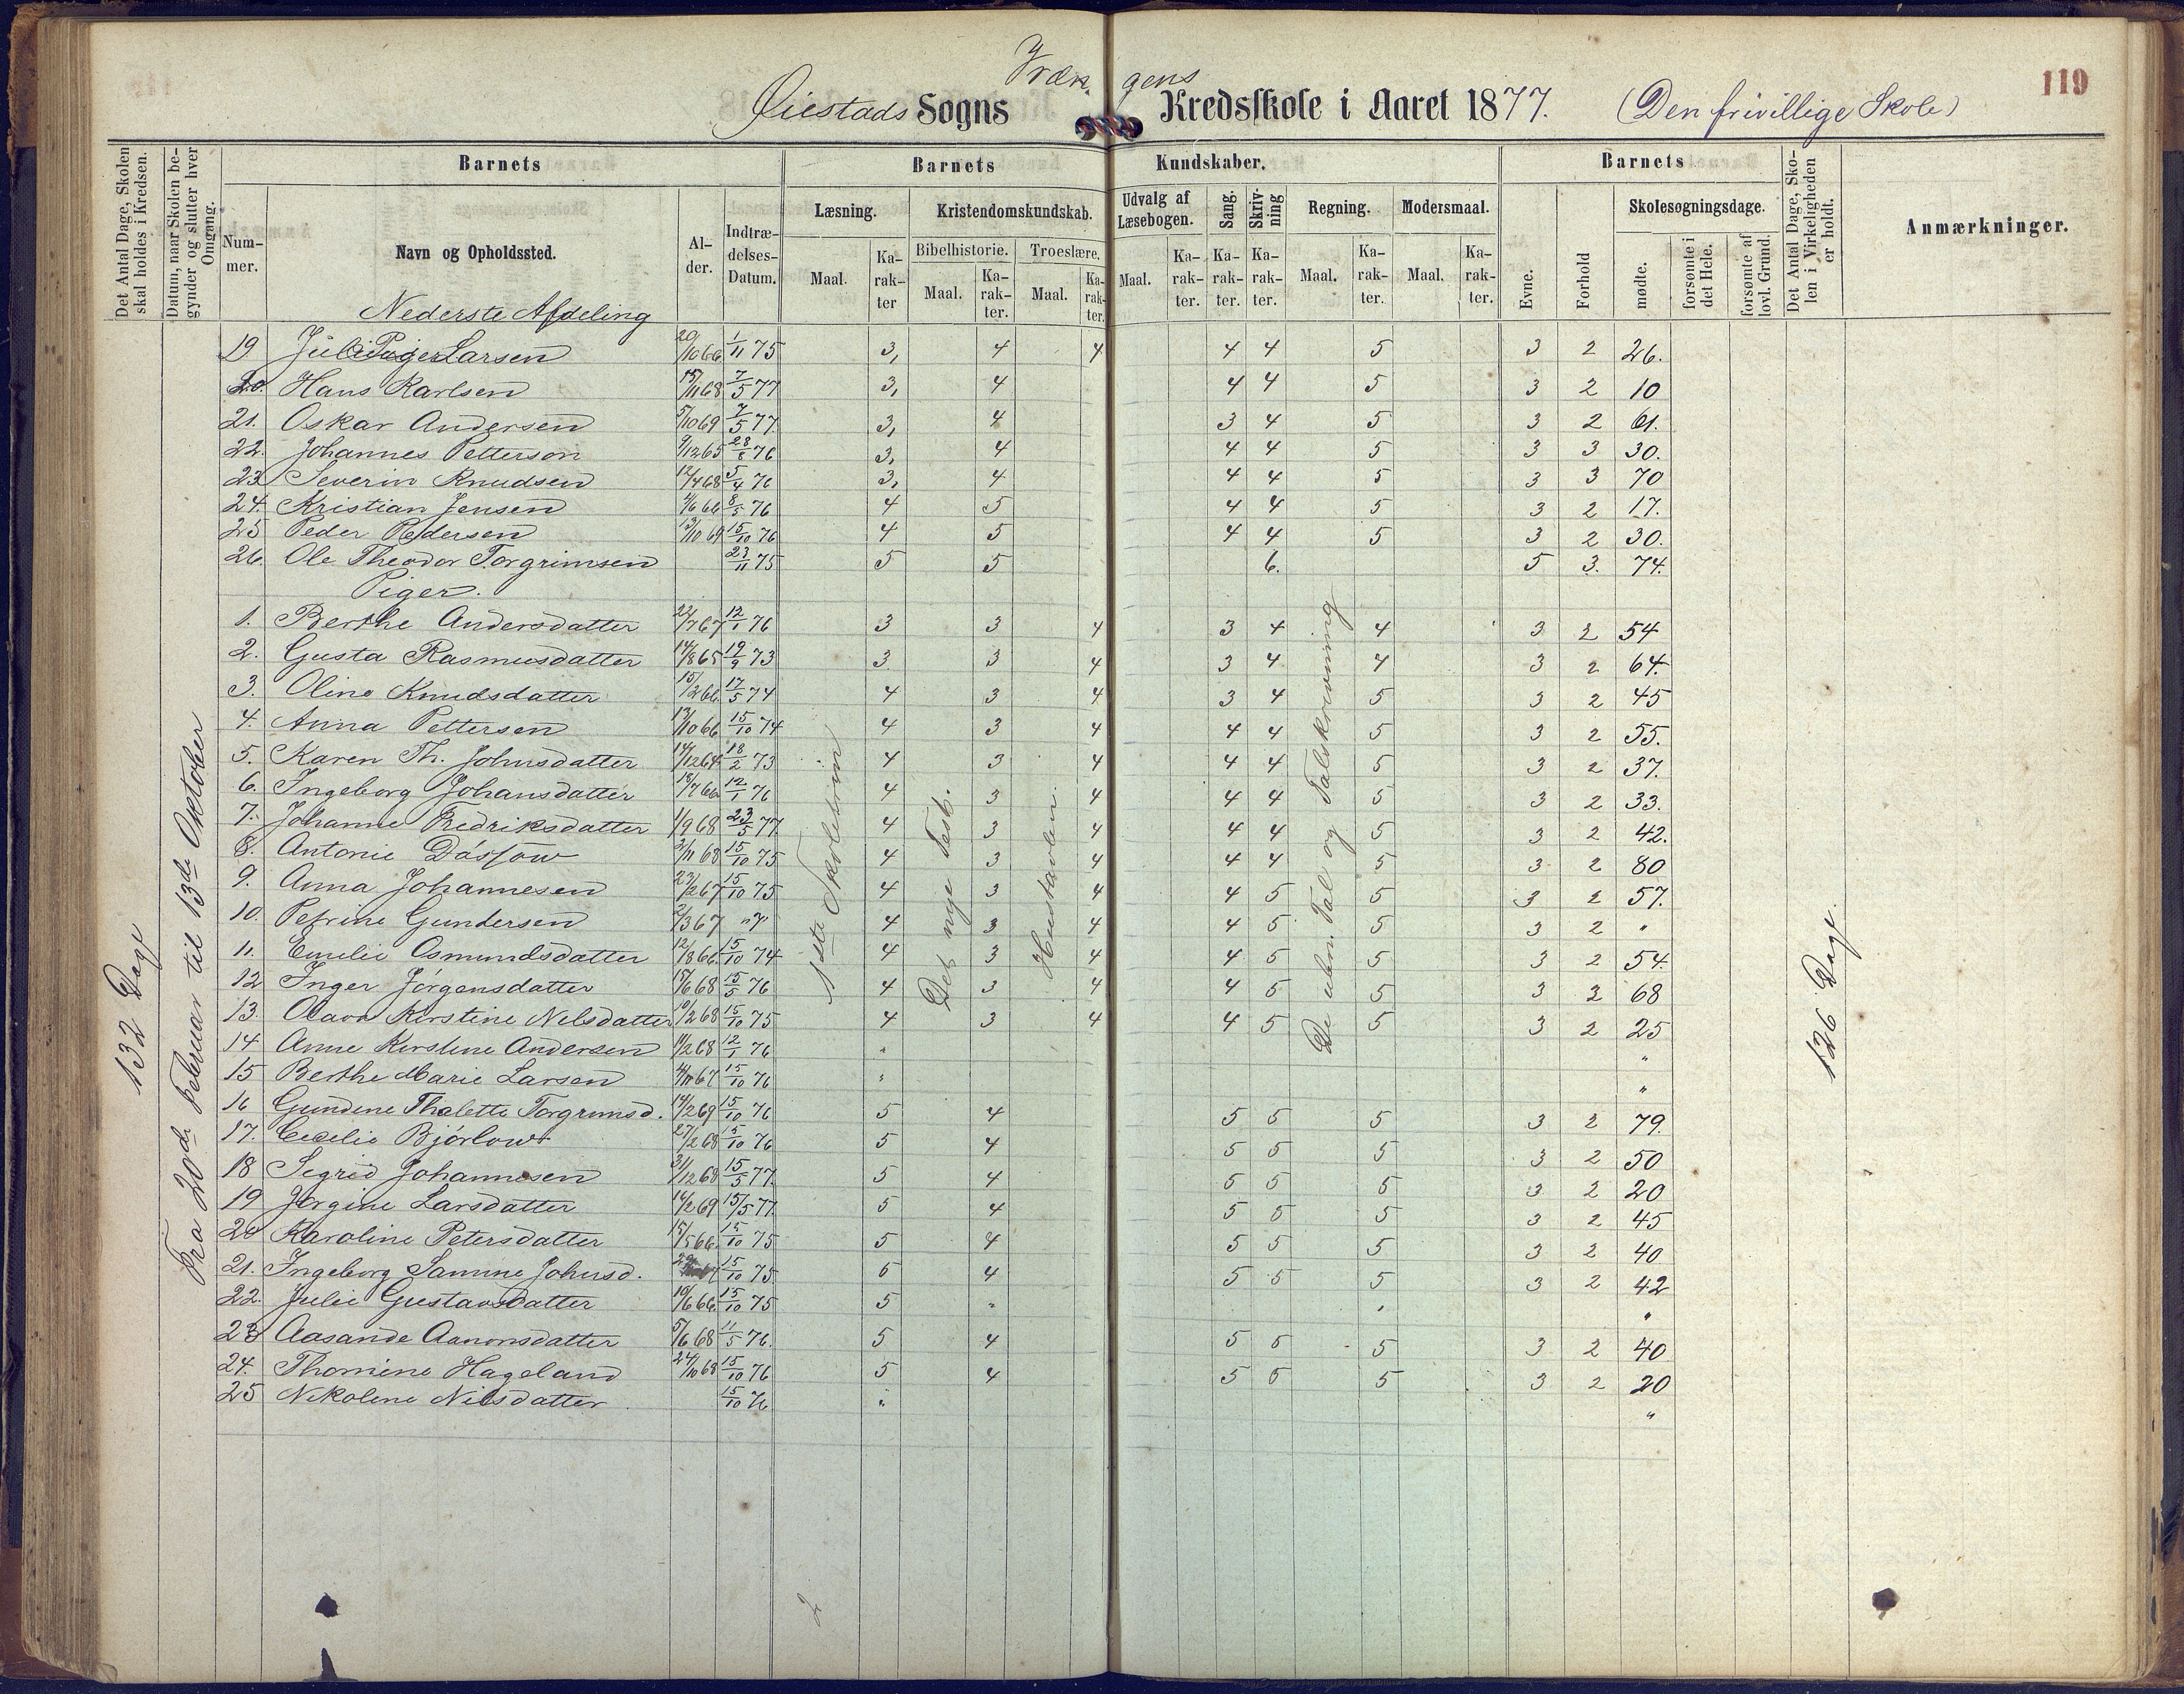 119
Øiestads Sogns Vrængens Kredsskole i Aaret 1877. (Den frivillige Skole)
Det Antal Dage, Skolen skal holdes i Kredsen.
Datum, naar Skolen begynder og slutter hver Omgang.
Barnets
Nummer.
Navn og Opholdssted.
Alder.
Indtrædelses-Datum.
Barnets Kundskaber.
Læsning. Maal. Karakter
Kristendomskundskab.
Bibelhistorie. Maal. Karakter.
Troeslære. Maal. Karakter.
Udvalg af Læsebogen. Maal. Karakter.
Sang. Karakter.
Skrivning Karakter.
Regning. Maal. Karakter.
Modersmaal. Maal. Karakter.
Barnets
Evne.
Forhold
Skolesøgningsdage.
mødte.
forsømte i det Hele.
forsømte af lovl. Grund.
Det Antal Dage, Skolen i Virkeligheden er holdt.
Anmærkninger.
Nederste Afdeling
132 Dage
Fra 20de Februar til 13de Oktober
1ste Skoletrin
Det nye Test.
Hustavlen.
De uben. Tal og Talskrivning
126 Dage.
19 Larsen 20/10 66 1/11 75 3, 4 4 4 4 5 3 2 26.
20. Hans Karlsen 15/11 68 7/5 77 3, 4 4 4 5 3 2 10
21. Oskar Andersen 5/10 69 7/5 77. 3, 4 3 4 5 3 2 61.
22. Johannes Petterson 9/12 65 28/8 76 3, 4 4 4 5 3 3 30.
23 Severin Knudsen 12/4 68 5/4 76 3, 4 4 4 5 3 3 70
24. Kristian Jensen 4/6 66 8/5 76 4 5 4 4 5 3 2 17.
25 Peder Pedersen 13/10 69 15/10 76 4 5 4 4 5 3 2 30.
26. Ole Theodor Torgrimsen 23/11 75 5 5 6. 5 3. 74.
Piger.
1. Berthe Andersdatter 22/7 67 12/1 76 3 3 4 3 4 4 3 2 54
2. Gusta Rasmusdatter 14/8 65 19/9 73 3 3 4 3 4 4 3 2 64.
3. Oline Knudsdatter 15/12 66. 17/5 74 4 3 4 3 4 5 3 2 45
4. Anna Pettersen 13/10 66 15/10 74 4 3 4 4 4 5 3 2 55.
5. Karen Th. Johnsdatter 14/12 64 18/2 73 4 3 4 4 4 5 3 2 37.
6. Ingeborg Johansdatter 18/7 66 12/1 76 4 3 4 4 4 5 3 2 33.
7. Johanne Fredriksdatter 1/9 68 23/5 77. 4 3 4 4 4 5 3 2 42.
8. Antonie 3/11 68 15/10 75 4 3 4 4 4 5 3 2 80
9. Anna Johannesen 23/2 67 15/10 75 4 3 4 4 5 5 3 2 57.
10. Petrine Gundersen 2/3 67 "7" 4 3 4 4 5 5 3 2 "
11. Emilie Osmundsdatter 12/8 66. 15/10 74 4 3 4 4 5 5 3 2 54.
12 Inger Jörgensdatter 15/6 68 15/5 76 4 3 4 4 5 5 3 2 68
13. Olava Kirstine Nilsdatter 10/2 68 15/10 75 4 3 4 4 5 5 3 2 25
14 Anne Kirstine Andersen 11/2 68 12/1 76 " "
15 Berthe Marie Larsen 4/11 67 15/10 76 " "
16 Gundene Thalette Torgrimsd. 14/2 69 15/10 76 5 4 5 5 5 3 2 79.
17. Cecelie Bjørlow 27/2 68 15/10 76 5 4 5 5 5 3 2 50
18 Segrid Johannesen 31/12 68 15/5 77. 5 4 5 5 5 3 2 20
19 Jørgine Larsdatter 14/2 69 15/5 77. 5 4 5 5 5 3 2 45
20 Karoline Petersdatter 15/5 66. 15/10 75 5 4 5 5 5 3 2 40
21. Ingeborg Samine Johnsd. 15/10 75 5 4 5 5 5 3 2 42
22. Julie Gustavsdatter 10/6 66. 15/10 75 5 " " "
23 Aasande Aanonsdatter 5/6 68 11/5 76. 5 4 5 5 5 3 2 40
24. Thomine Hageland 24/10 68 15/10 76 5 4 5 5 5 3 2 20
25 Nikoline Nilsdatter 15/10 76 " "
2